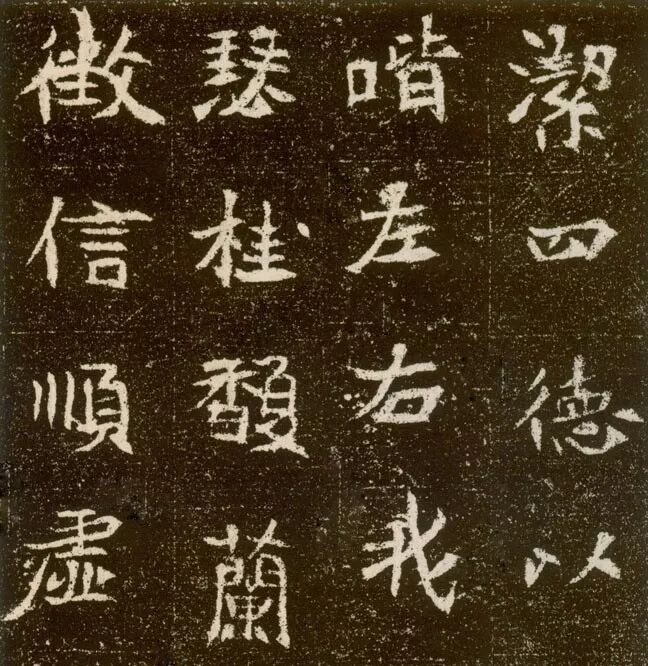 潔四德以
喈左右我
瑟桂馥蘭
徴信順虛